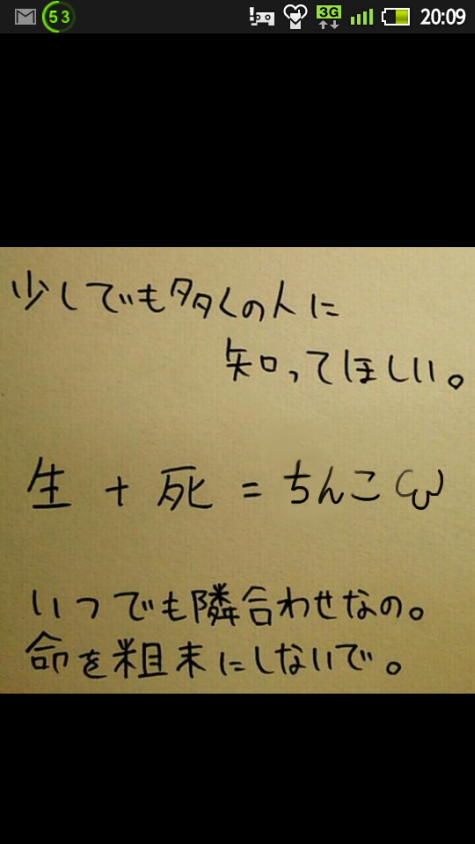 53
3G
20:09
少しでも多くの人に
知ってほしい。
生 + 死 = ちんこω
いつでも隣合わせなの。
命を粗末にしないで。